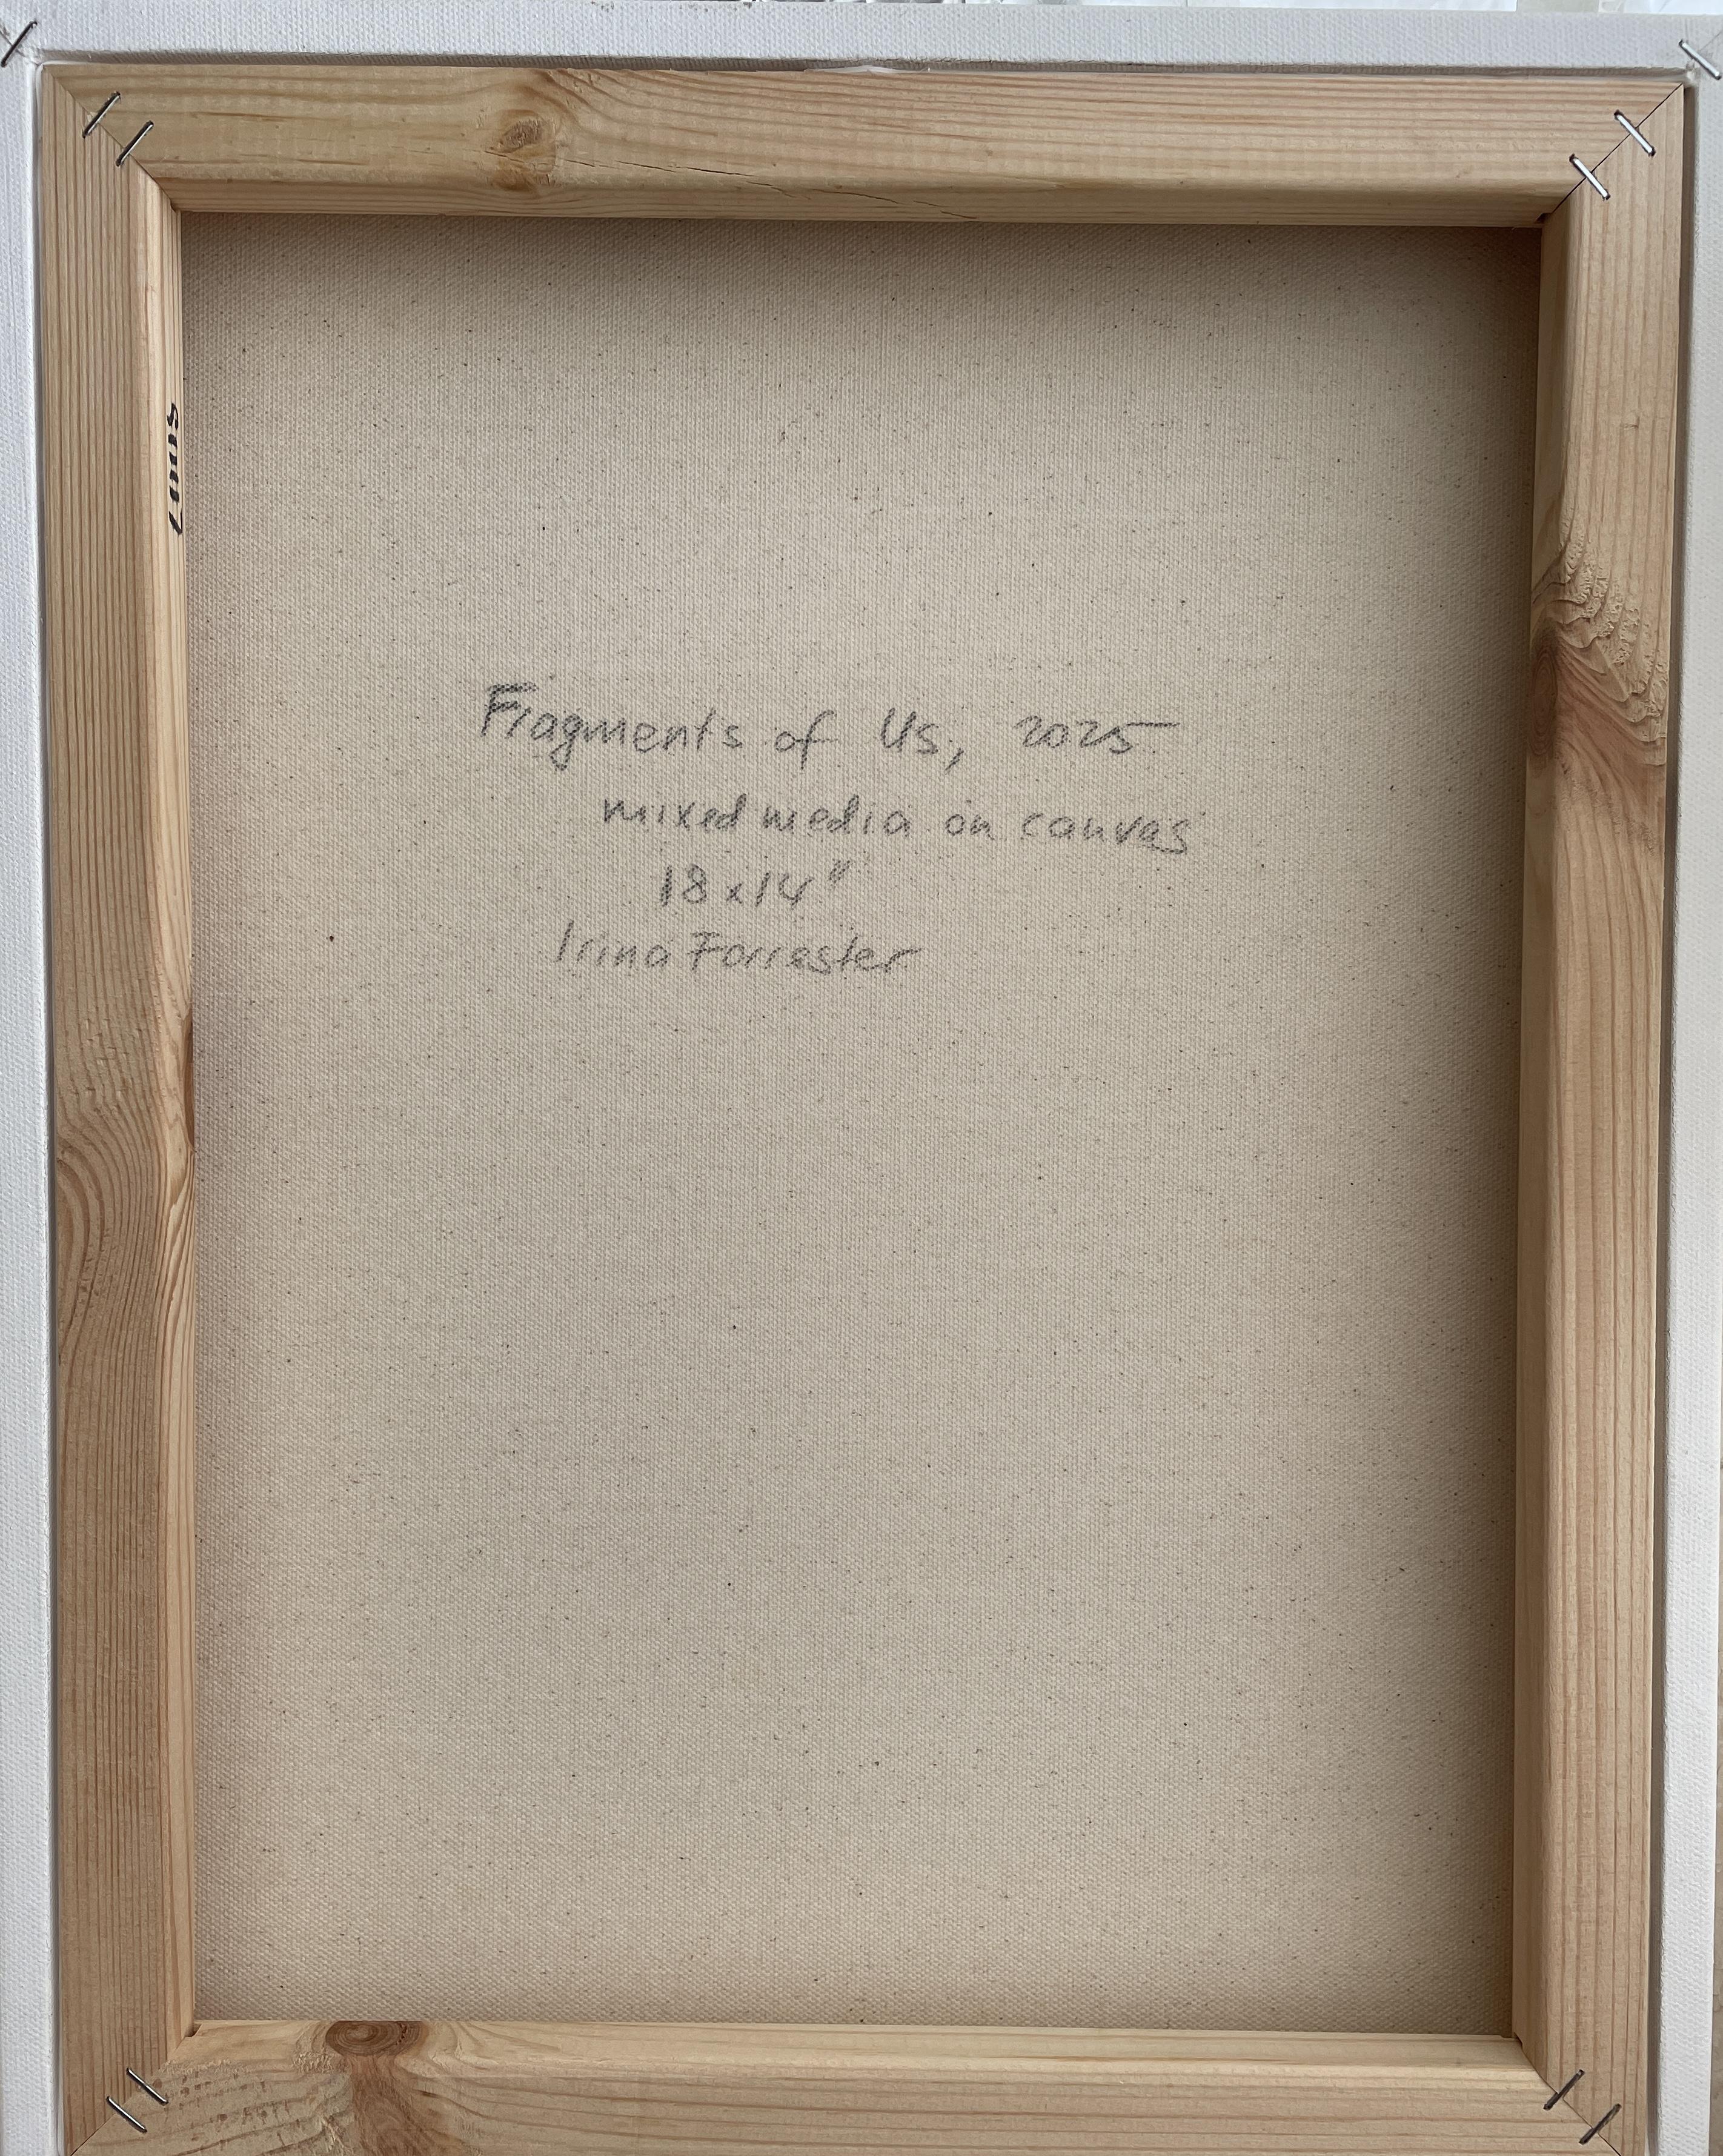 Fragments of Us, 2025
mixed media on canvas
18 x 14"
Irina Forrester